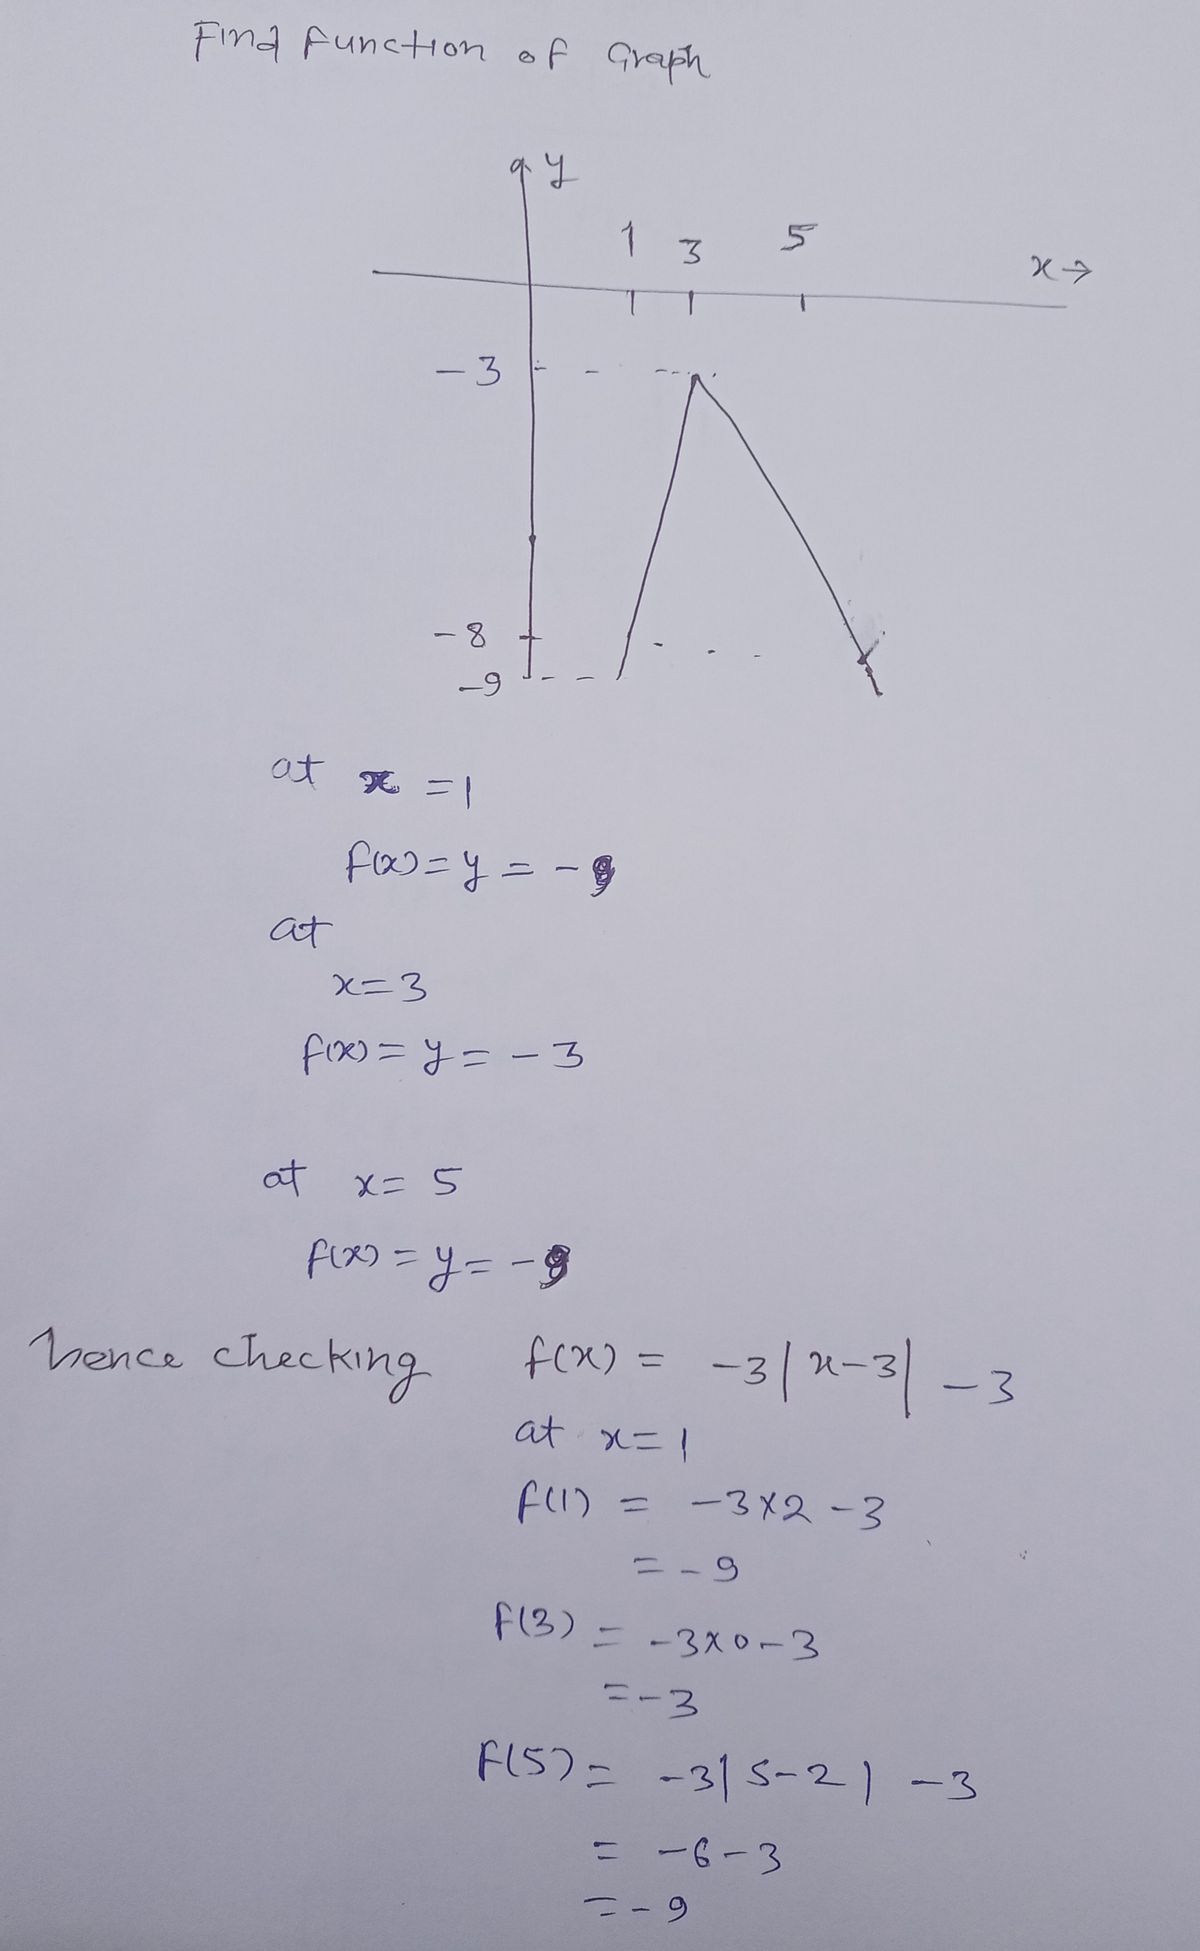 Find function of Graph
y
1 3 5
x→
-3
-8
-9
at x = 1
f(x) = y = -9
at
x = 3
f(x) = y = -3
at x = 5
f(x) = y = -9
hence checking f(x) = -3|x-3| -3
at x = 1
f(1) = -3x2 -3
= -9
f(3) = -3x0-3
= -3
f(5) = -3|5-2| -3
= -6-3
= -9